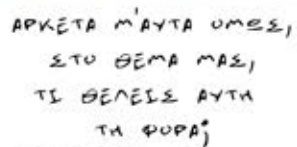 ΑΡΚΕΤΑ Μ'ΑΥΤΑ ΟΜΩΣ,
ΣΤΟ ΘΕΜΑ ΜΑΣ,
ΤΙ ΘΕΛΕΙΣ ΑΥΤΗ
ΤΗ ΦΟΡΑ;